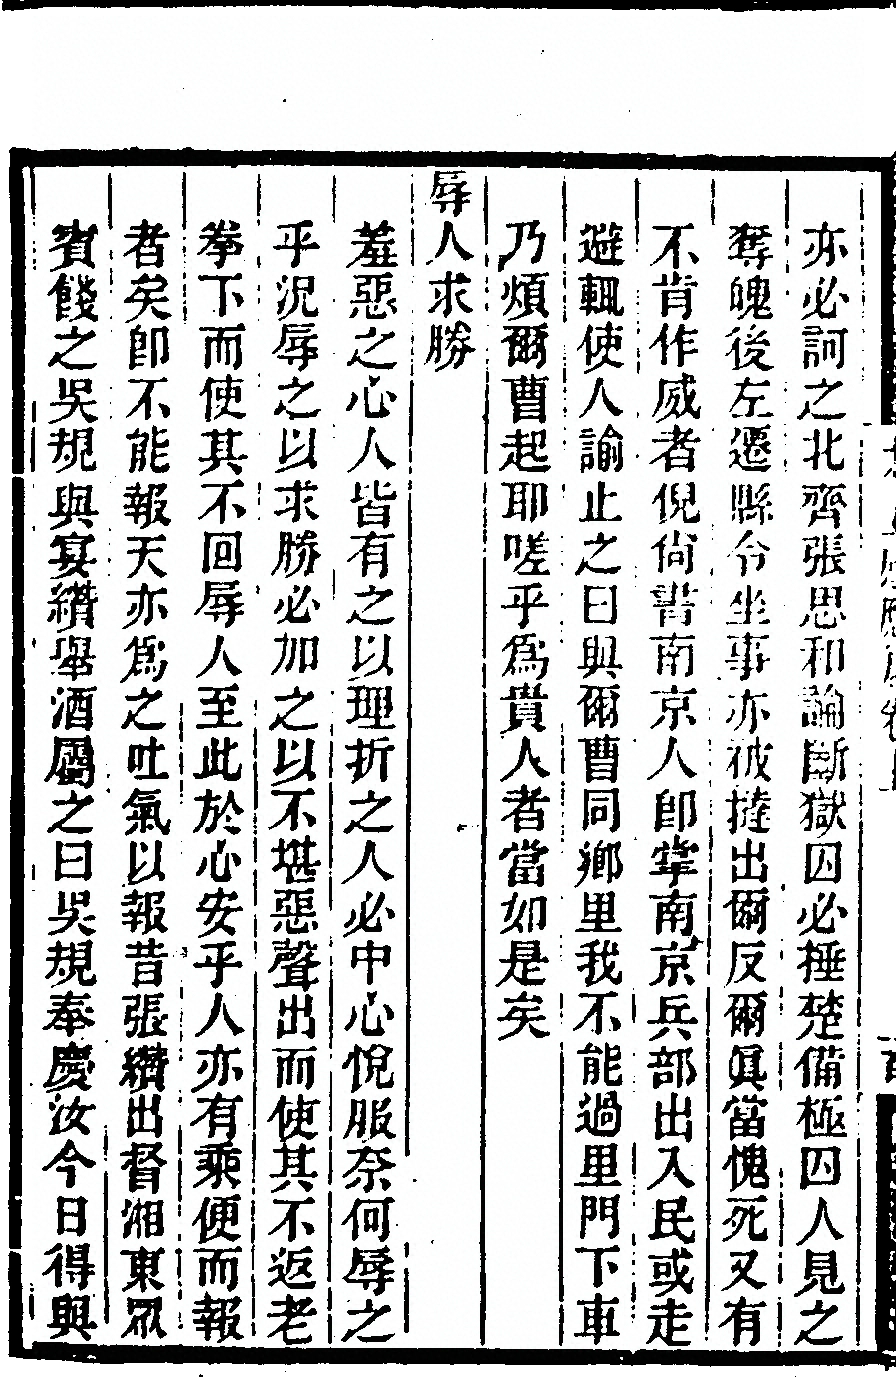 亦必訶之北齊張思和論斷獄囚必捶楚備極囚人見之
奪魄後左遷縣令坐事亦被撻出爾反爾眞當愧死又有
不肯作威者倪尙書南京人卽掌南京兵部出入民或走
避輒使人諭止之曰與爾曹同鄉里我不能過里門下車
乃煩爾曹起耶嗟乎爲貴人者當如是矣
辱人求勝
羞惡之心人皆有之以理折之人必中心悅服奈何辱之
乎況辱之以求勝必加之以不堪惡聲出而使其不返老
拳下而使其不回辱人至此於心安乎人亦有乘便而報
者矣卽不能報天亦爲之吐氣以報昔張纘出督湘東眾
賓餞之吳規與宴纘舉酒屬之曰吳規奉慶汝今日得與